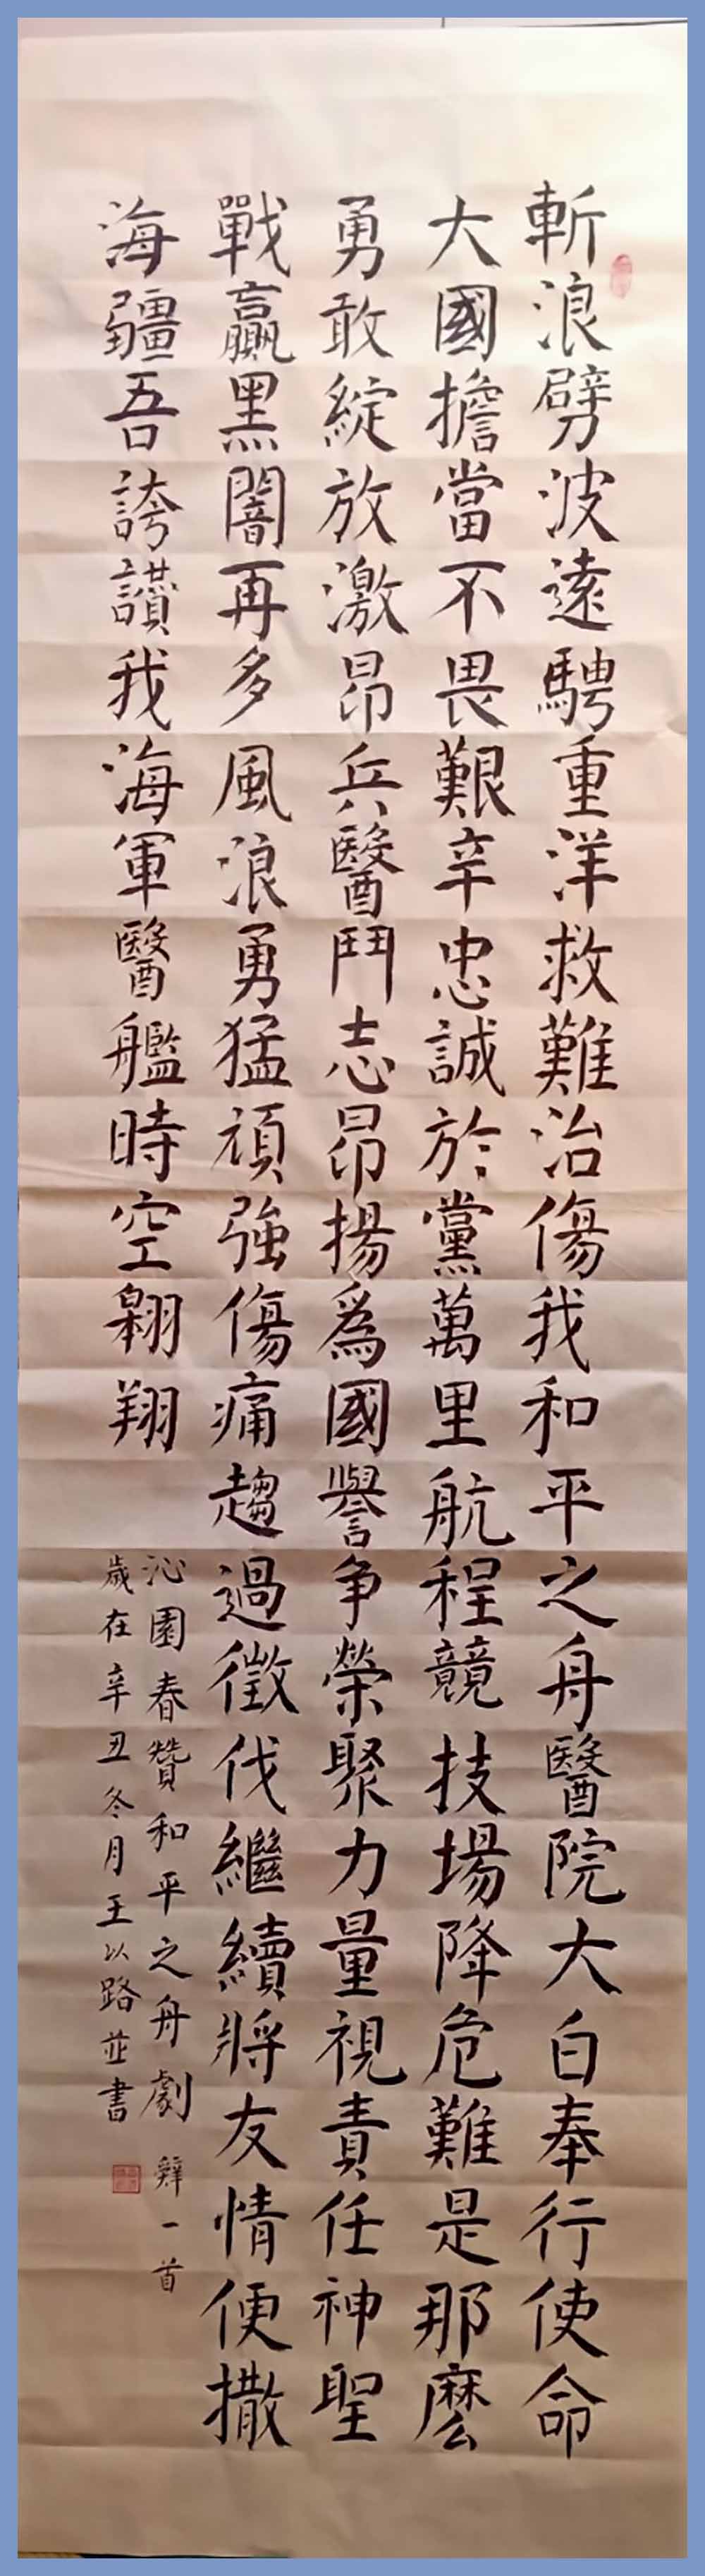 斬浪劈波遠騁重洋救難治傷我和平之舟醫院大白奉行使命
大國擔當不畏艱辛忠誠於黨萬里航程競技場降危難是那麽
勇敢綻放激昂兵醫鬥志昂揚爲國譽争榮聚力量視責任神聖
戰贏黑闇再多風浪勇猛頑強傷痛趨過徵伐繼續將友情便撒
海疆吾誇讚我海軍醫艦時空翱翔
沁園春贊和平之舟劇辭一首
歲在辛丑冬月王以路並書